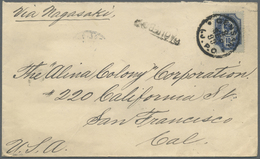 Via Nagasaki.
The "Alina Colony" Corporation
220 California St.
San Francisco
Cal.
U.S.A.